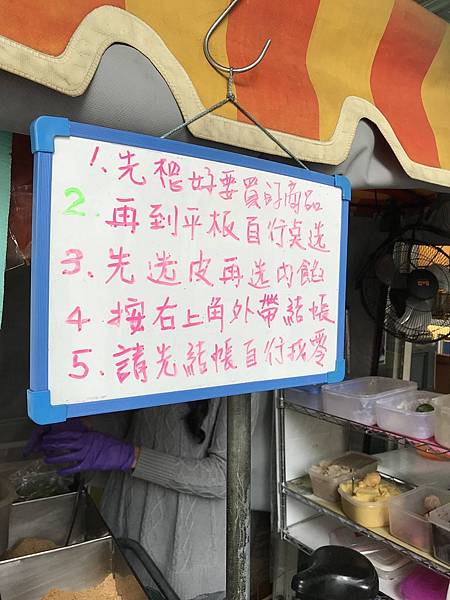 1. 先想好要買的商品
2. 再到平板自行點選
3. 先選皮再選內餡
4. 按右上角外帶結帳
5. 請先結帳自行找零